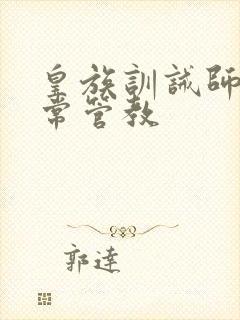 皇族訓誡師
常管教
郭達